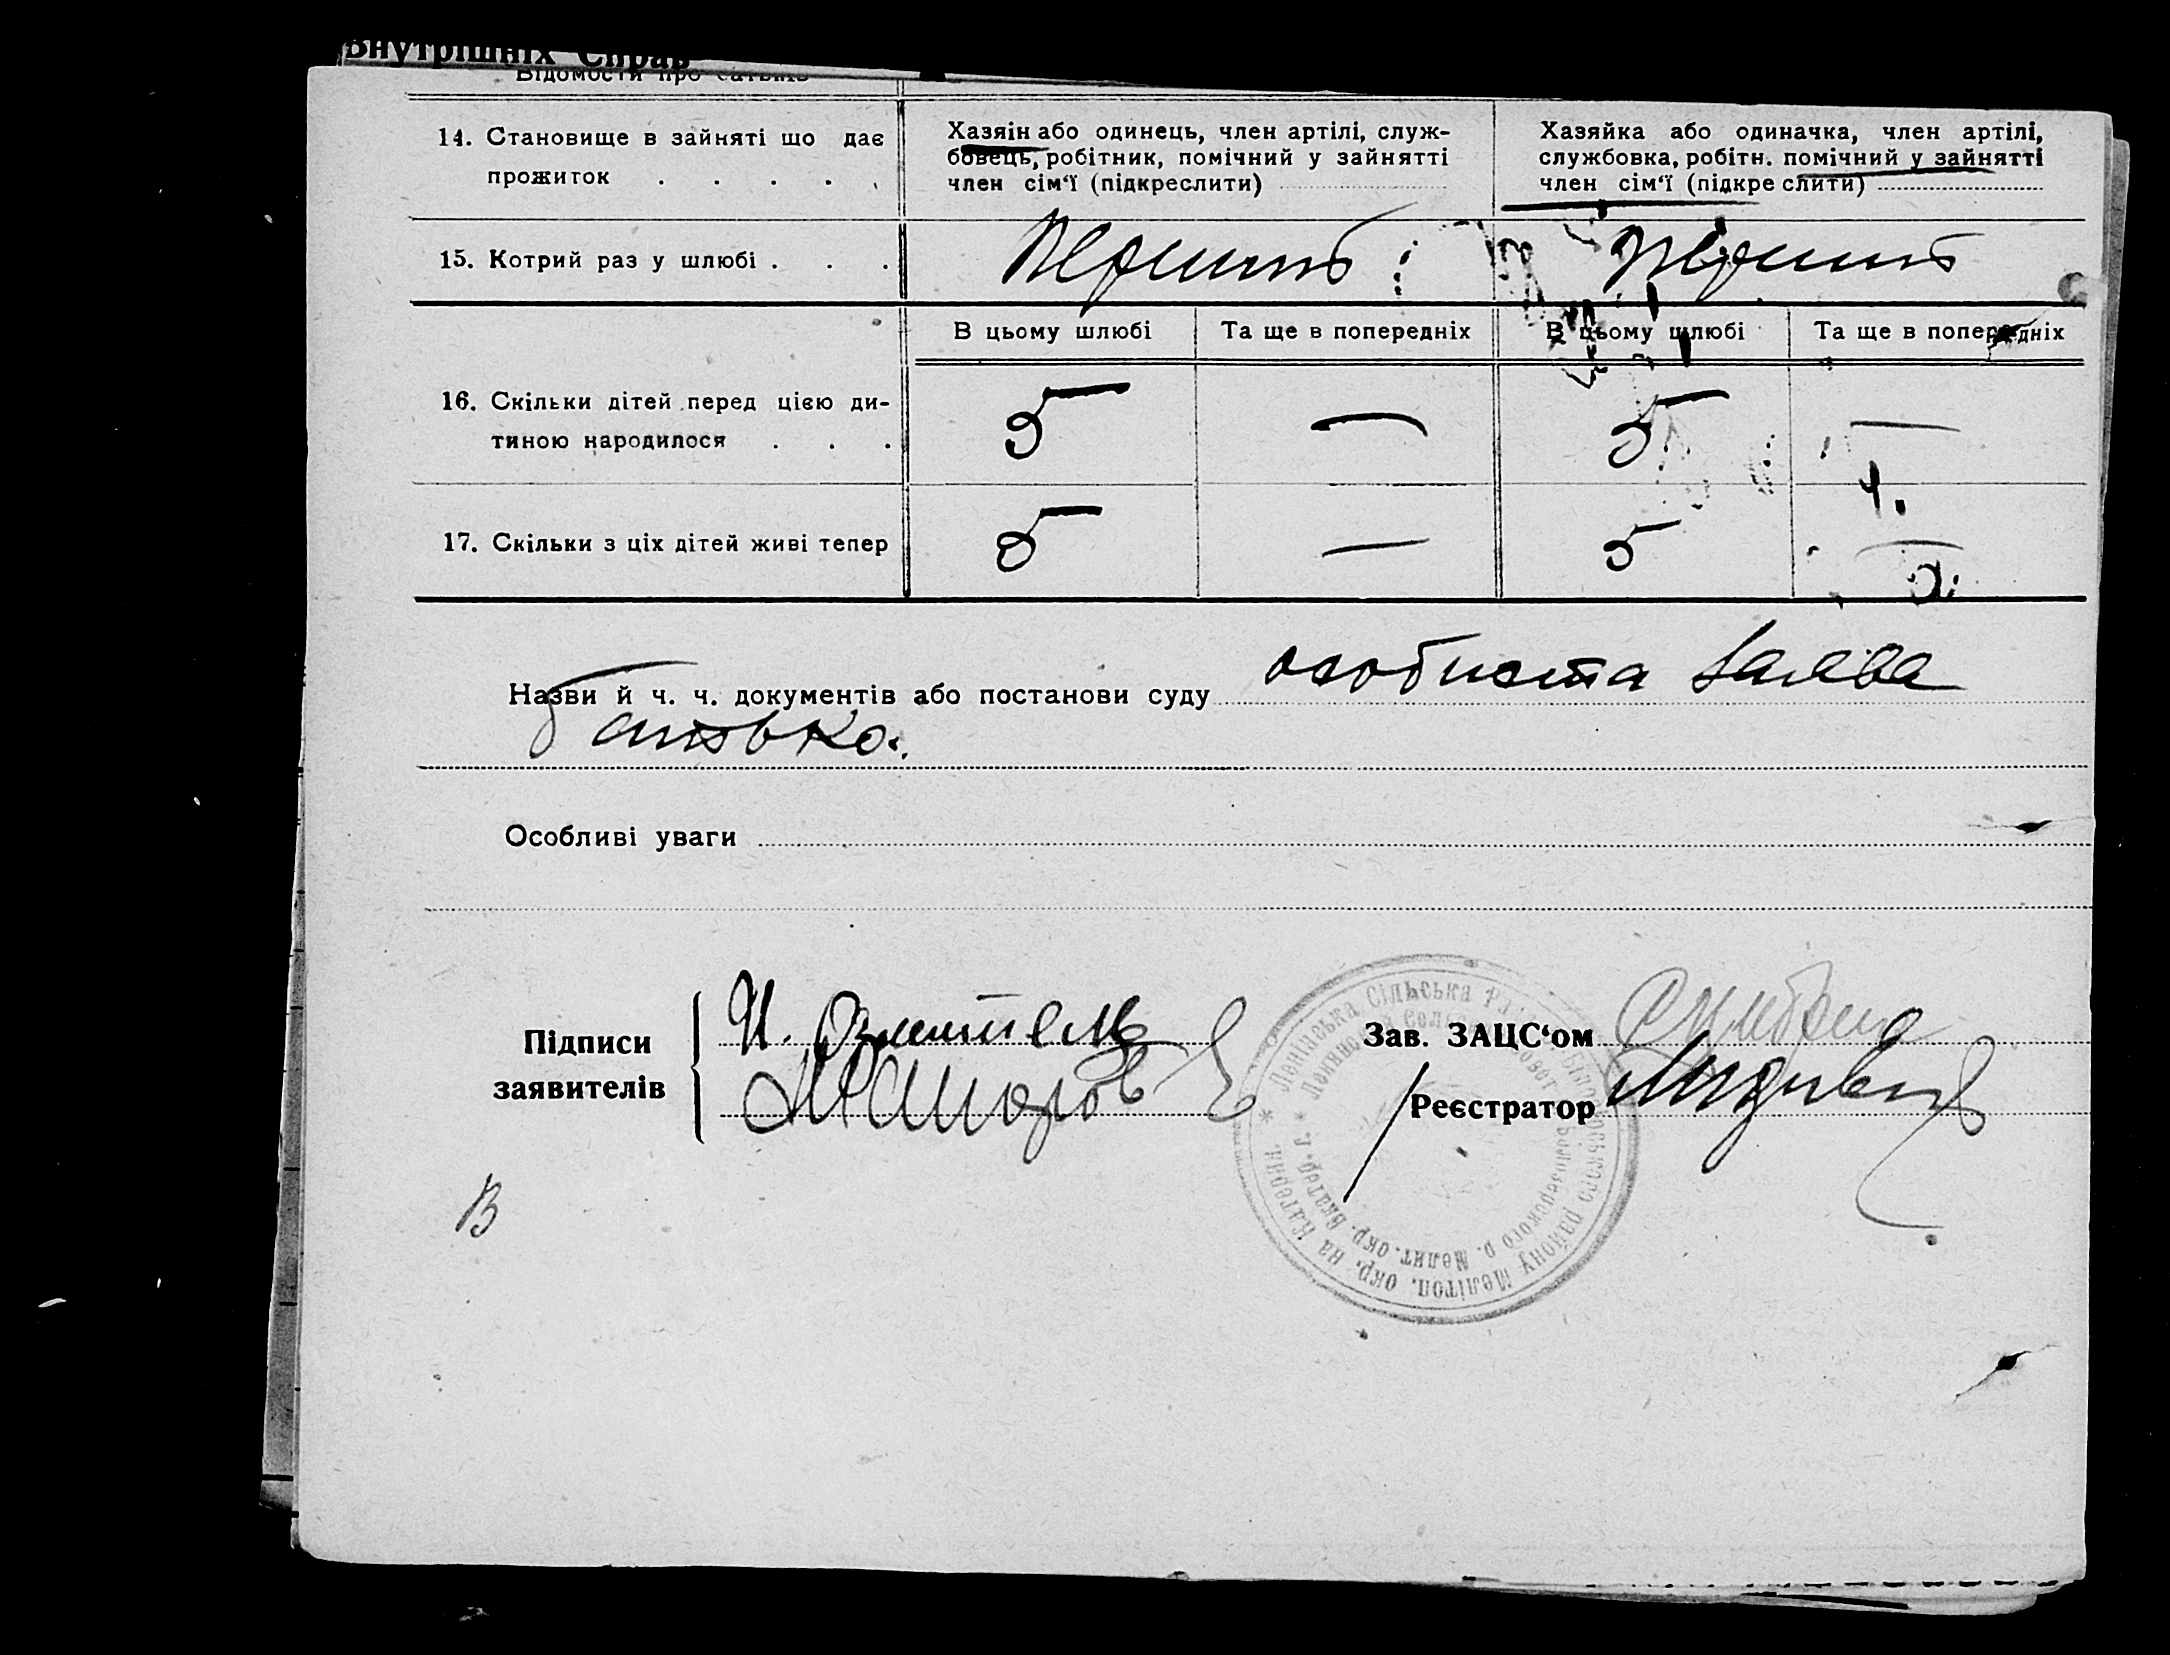 Внутрішніх Справ
Відомости про батьків
14. Становище в зайняті що дає
прожиток . . . . .
Хазяін або одинець, член артілі, служ-
бовець, робітник, помічний у зайнятті
член сім‘ї (підкреслити)
Хазяйка або одиначка, член артілі,
службовка, робітн. помічний у зайнятті
член сім‘ї (підкреслити)
15. Котрий раз у шлюбі . . .
В цьому шлюбі Та ще в попередніх В цьому шлюбі Та ще в попередніх
16. Скільки дітей перед цією ди-
тиною народилося . . .
5 — 5 —
17. Скільки з ціх дітей живі тепер
5 — 5 —
Назви й ч. ч. документів або постанови суду особиста заява
батька.
Особливі уваги
Підписи
заявителів
Зав. ЗАЦС‘ом
Реєстратор
Ленінська Сільська Білозерського району Мелітоп. окр. на Катерин.
Белозерского р. Мелит. окр. Екатер. г.
В